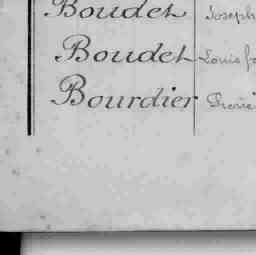 Boudet Joseph
Boudet Louis
Bourdier Pierre